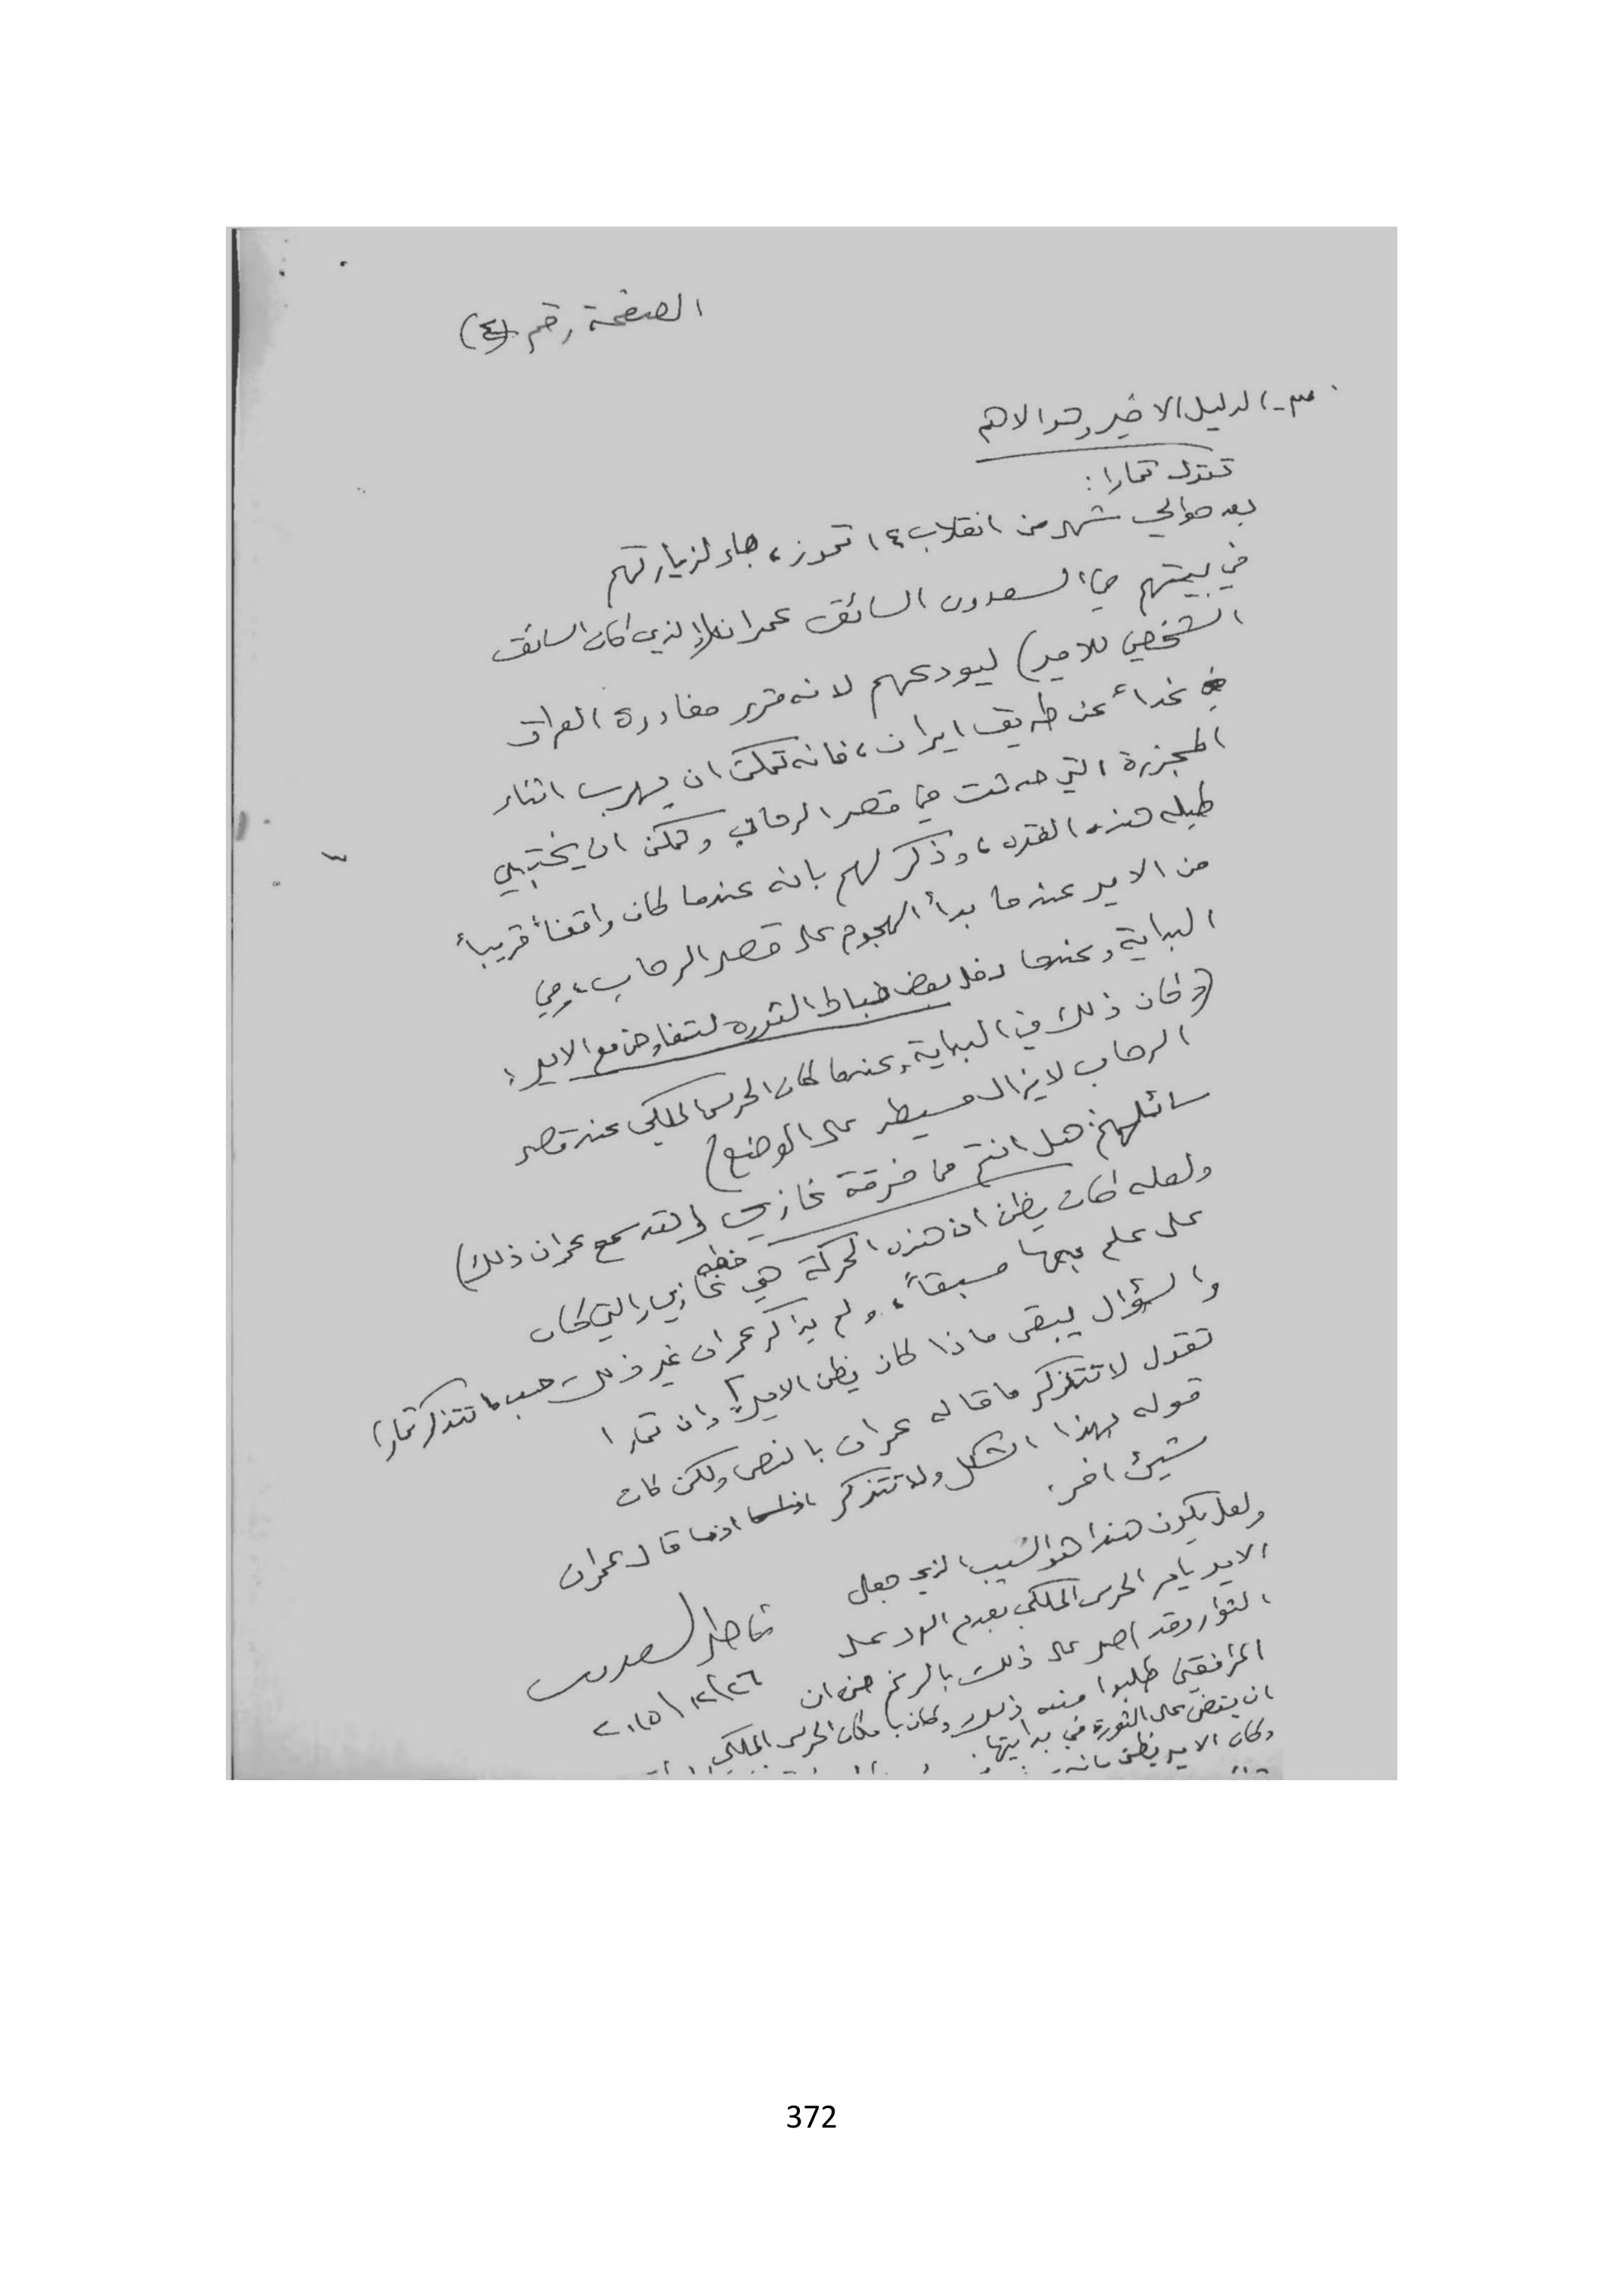 الصفحة رقم (٤)
٣- الدليل الاخير وهو الاهم
تقول تمارا :
بعد حوالي شهر من انقلاب ١٤ تموز، جاء لزيارتهم
في بيتهم في السعدون السائق عمران (الذي كان السائق
الشخصي للامير) ليودعهم لانه قرر مغادرة العراق
غداً عن طريق ايران، فانه تمكن ان يهرب اثناء
المجزرة التي حدثت في قصر الرحاب وتمكن ان يختبي
طيله هذه الفتره، وذكر لهم بانه عندما كان واقفاً قريباً
من الامير عندما بدأ الهجوم على قصر الرحاب، في
البداية وعندما دخل بعض ضباط الثوره لتتفاوض مع الامير؛
(وكان ذلك في البداية وعندما كان الحرس الملكي عند قصر
الرحاب لايزال مسيطر على الوضع)
سائلهم: هل انتم من فرقة غازي (لقد سمع عمران ذلك)
ولعله كان يظن ان هذه الحركة هي خطه غازي والتي كان
على علم بها مسبقاً، ولم يذكر عمران غير ذلك حسب ما تتذكر تمارا
والسؤال يبقى ماذا كان يظن الامير؟ وان تمارا
تقول لا تتذكر ما قاله عمران بالنص ولكن كان
قوله بهذا الشكل ولا تتذكر اذا قال عمران
شيئ اخر.
ولعل يكون هذا هو السبب الذي جعل
الامير يامر الحرس الملكي بعدم الرد على
الثوار وقد اصر على ذلك بالرغم من ان
المرافقين طلبوا منه ذلك وكان بامكان الحرس الملكي
ان يقضي على الثورة في بدايتها.
وكان الامير يظن بانه
السعدون
٢٠١٥/١٢/٢٦
372